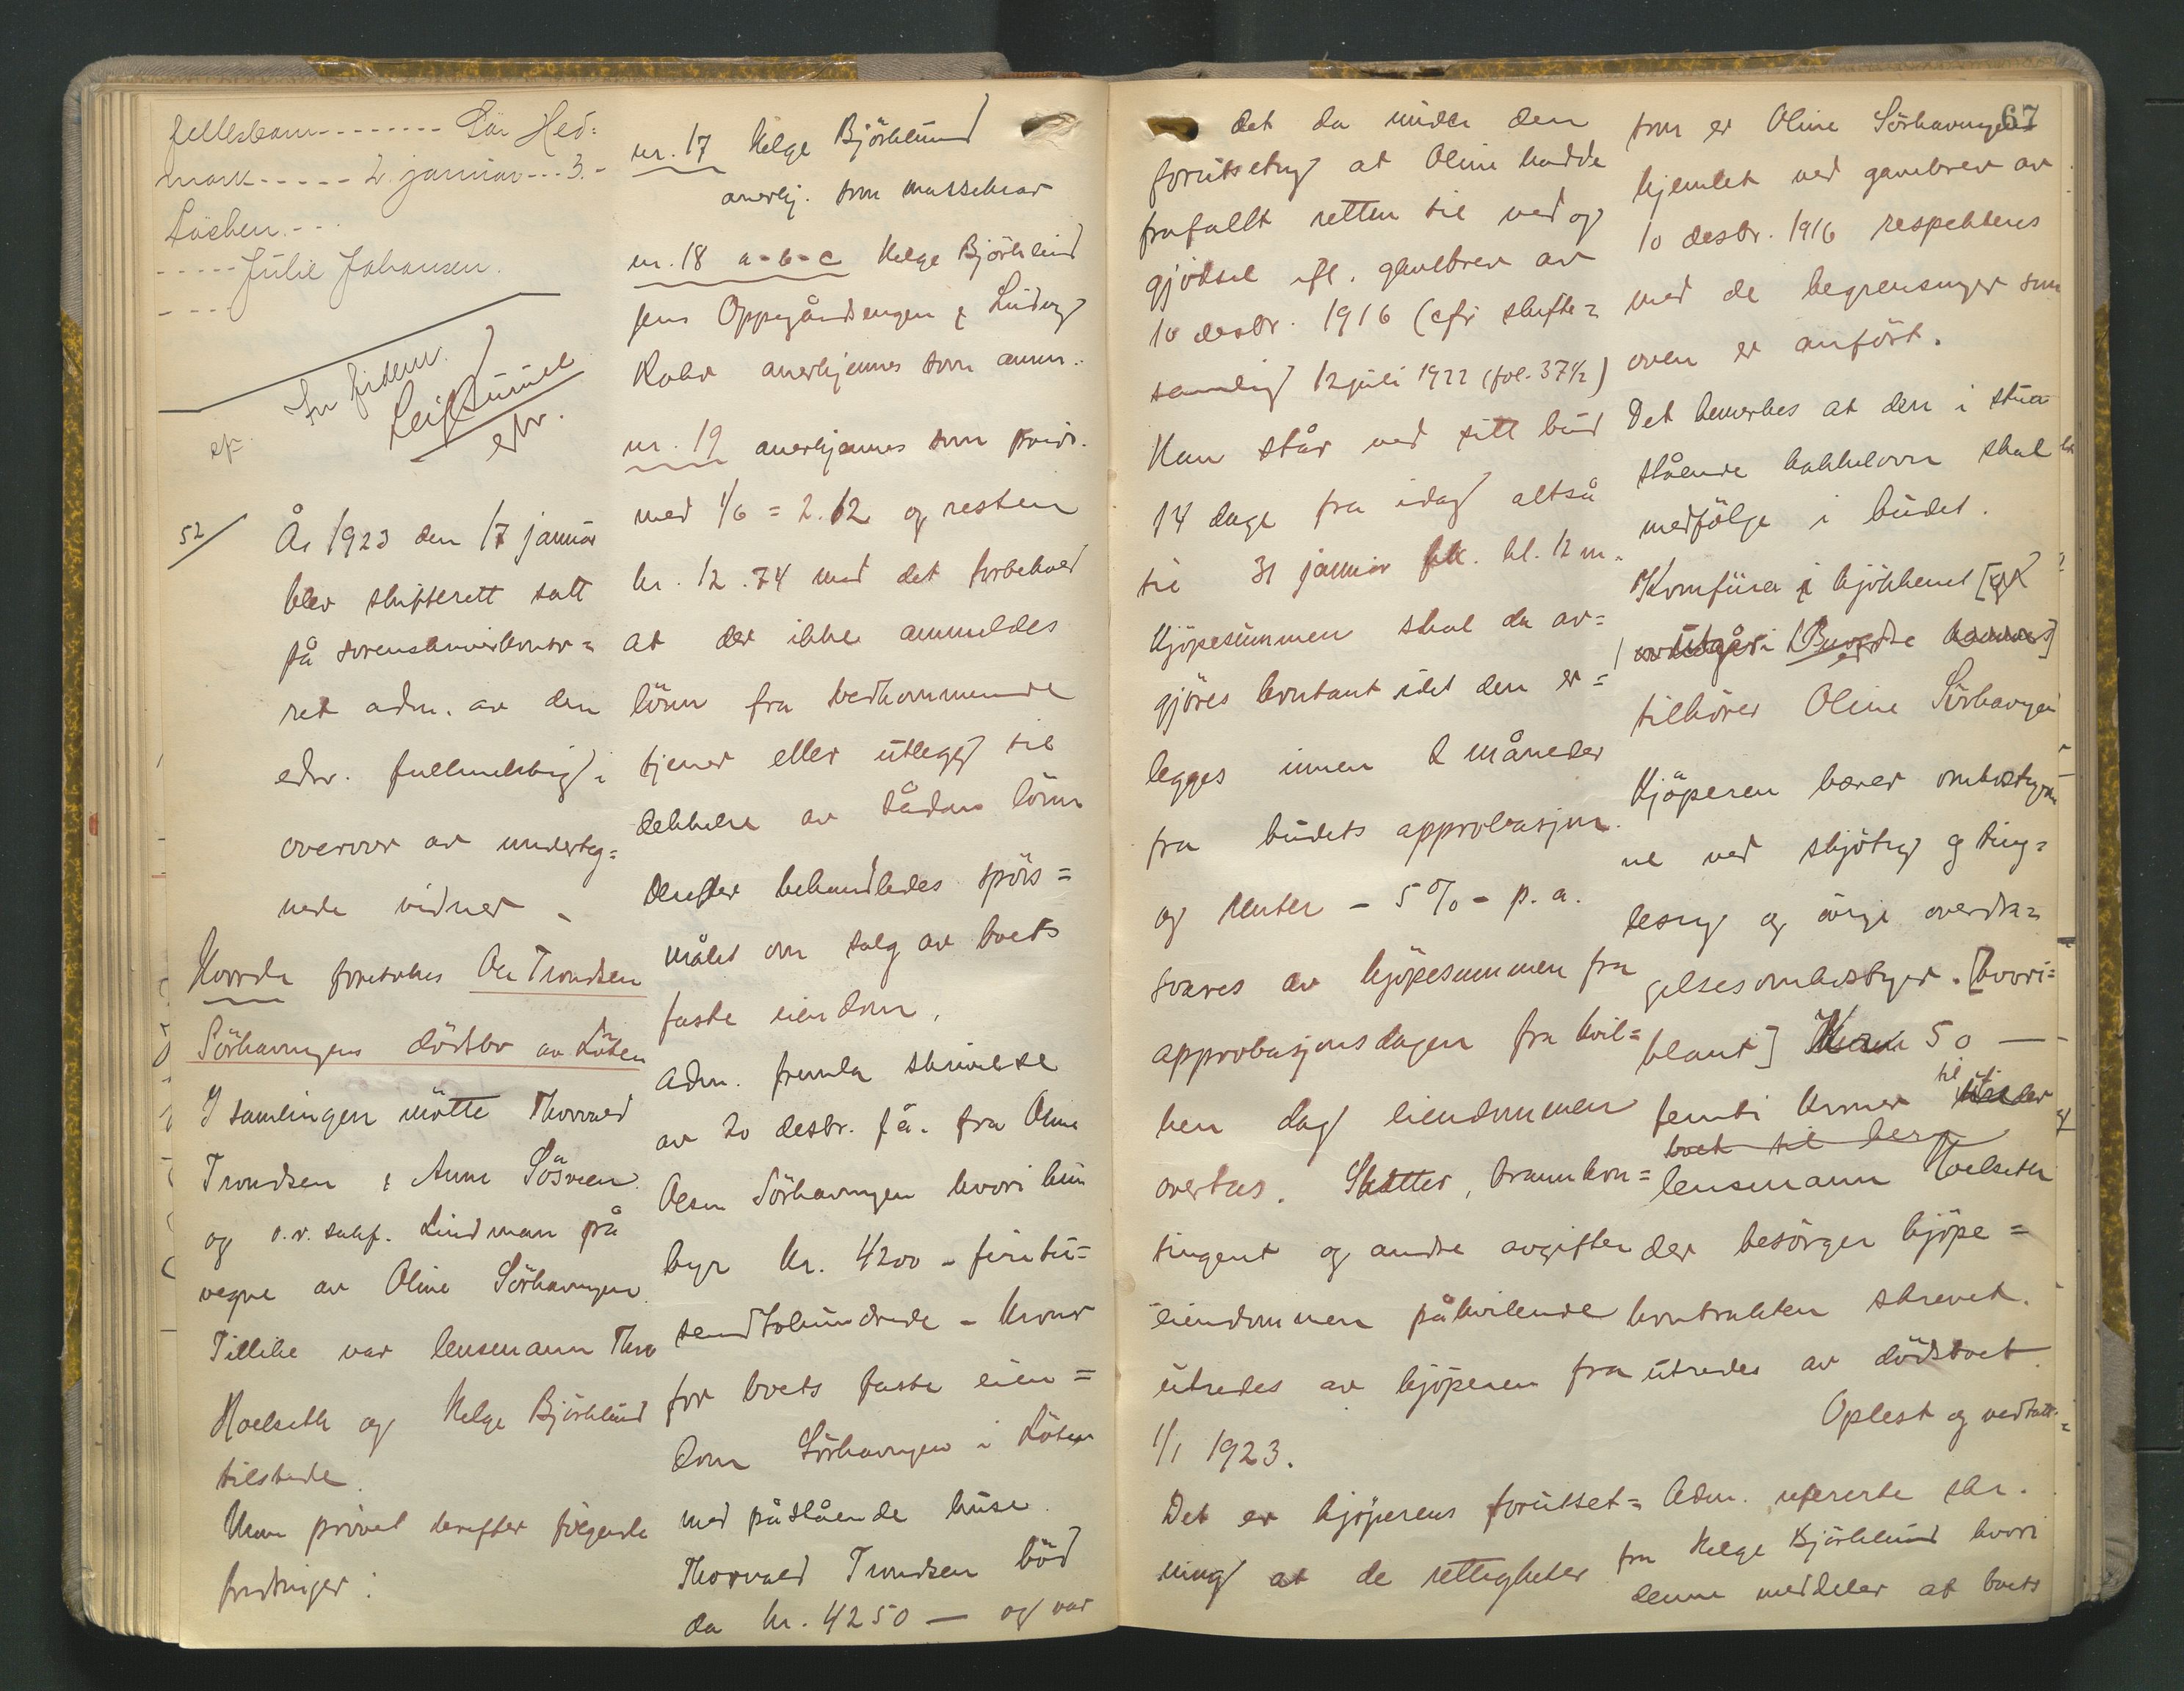 fellesbarn - - - - - - - - Sör Hed=
mark - - - - - 2. januar - - - 3. -
Löchen - - -
- - - - - Julie Johansen.
- - - -
In fidem.
Leif
efw.
52/
År 1923 den 17 januar
blev skifterett satt
på sorenskriverkonto=
ret adm. av den
edsv. fullmektig i
overvær av underteg=
nede vidner -
Hvorda foretokes Ole Trondsen
Sörhavngens dödsbo av Löten
I samlingen mötte Thorvald
Trondsen &
og o.r. sakf. Lindman på
vegne av Oline Sörhavngen.
Tillike var lensmann Thv
Hoelseth og Helge Björklund
tilstede.
Man prövet derefter fölgende
fordringer:
nr. 17 Helge Björklund
anerkj. som massekrav
nr. 18 a-b-c Helge Björklund
Jens Oppegårdsengen & Ludvig
anerkjennes som anm..
nr. 19 anerkjennes som privi.
med 1/6 = 2.12 og resten
kr. 12.74 med det forbehold
at der ikke anmeldes
lönn fra vedkommende
tjener eller utlegg til
dekkelse av sådan lönn
Derefter behandledes spörs=
målet om salg av boets
faste eiendom.
Adm. fremla skrivelse
av 20 desbr. f.å. fra Oline
Olsen Sörhavngen hvori hun
byr kr. 4200 - firetu=
sendtohundrede - kroner
for boets faste eien=
dom Sörhavngen i Löten
med påstående huse.
Thorvald Trondsen böd
da kr. 4250 — og var
67
det da under den
forutsetng at Oline hadde
frafallt retten til ved og
gjödsel ifl. gavebrev av
10 desbr. 1916 (cfr skifte=
samling 12 juli 1922 (fol. 37½)
Han står ved sitt bud
14 dage fra idag altså
til 31 januar kl. 12 m.
Kjöpesummen skal da av=
gjöres kontant idet den er=
legges innen 2 måneder
fra budets approbasjon.
og renter - 5 % - p. a.
svares av kjöpesummen fra
approbasjonsdagen fra hvil=
ken dag eiendommen
overtas. Skatter, brannkon=
tingent og andre avgifter
eiendommen påhvilende
utredes av kjöperen fra
1/1 1923.
Det er kjöperens forutset=
ning at de rettigheter
som er Oline Sörhavngen
hjemlet ved gavebrev av
10 desbr. 1916 respekteres
med de begrensninger som
oven er anfört.
Det bemerkes at den i stua
stående kakkelovn skal
medfölge i budet.
Komfüren i kjökkenet [og
tilhörer Oline Sörhavngen
Kjöperen bærer omkostnin
ne ved skjötng og ting=
lesng og övrige overdra=
gelsesomkostnger. [hvori=
blant] 50 —
femti kroner til
boet til ber
lensmann Hoelseth
der besörger kjöpe=
kontrakten skrevet.
utredes av dödsboet
Oplest og vedtatt.
Adm. refererte skr.
fra Helge Björklund hvori
denne meddeler at boets